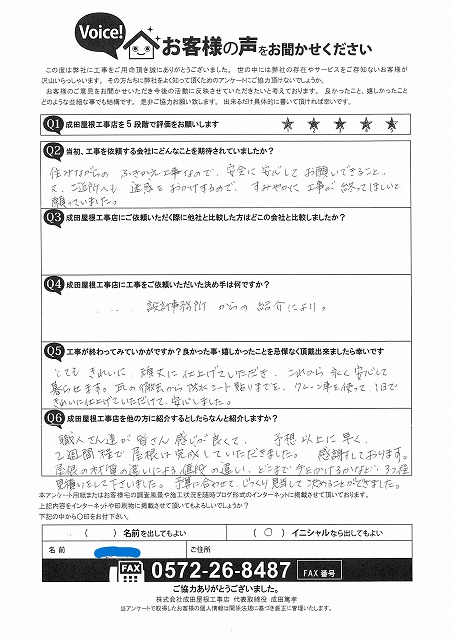 Voice!
お客様の声をお聞かせください
この度は弊社に工事をご用命頂き誠にありがとうございました。世の中には弊社の存在やサービスをご存知ないお客様が
沢山いらっしゃいます。その方たちに弊社をよく知って頂くためのアンケートにご協力頂けないでしょうか。
お客様のご意見をお聞かせいただき今後の活動に反映させていただきたいと考えております。良かったこと、嬉しかったこと
どのような些細な事でも結構です。是非ご協力お願い致します。出来るだけ具体的に書いて頂ければ幸いです。
Q1 成田屋根工事店を5段階で評価をお願いします
Q2 当初、工事を依頼する会社にどんなことを期待されていましたか？
住みながらの ふきかえ工事なので、安全に安心して お願いできること。
又、ご近所へも 迷惑を おかけするので、すみやかに 工事が 終ってほしいと
願っていました。
Q3 成田屋根工事店にご依頼いただく際に他社と比較した方はどこの会社と比較しましたか？
Q4 成田屋根工事店に工事をご依頼いただいた決め手は何ですか？
設計事務所 からの 紹介により。
Q5 工事が終わってみていかがですか？良かった事・嬉しかったことを忌憚なく頂戴出来ましたら幸いです
とても きれいに、頑丈に 仕上げていただき、これから 永く 安心して
暮らせます。瓦の撤去から 防水シート貼りまでを、クレーン車を使って 1日で
きれいに仕上げていただけて、安心しました。
Q6 成田屋根工事店を他の方に紹介するとしたらなんと紹介しますか？
職人さん達が 皆さん 感じが良くて、予想以上に 早く、
2週間程で 屋根は 完成していただきました。感謝しております。
屋根の材質の違いによる 値段の違い、どこまで 手をかけるかなど、3種
見積りをして下さいました。予算に合わせて、じっくり 検討して 決めることができました。
本アンケート用紙またはお客様宅の調査風景や施工状況を随時ブログ形式のインターネットに掲載させて頂いております。
上記内容をインターネットや印刷物に掲載させて頂いてもよろしいでしょうか？
下記の中から〇印をお付け下さい。
（　）名前を出してもよい （○）イニシャルなら出してもよい
名前 ご住所
FAX 0572-26-8487 FAX番号
ご協力ありがとうございました。
株式会社成田屋根工事店 代表取締役 成田篤孝
当アンケートで取得したお客様の個人情報は関係法規に基づき厳正に管理いたします。